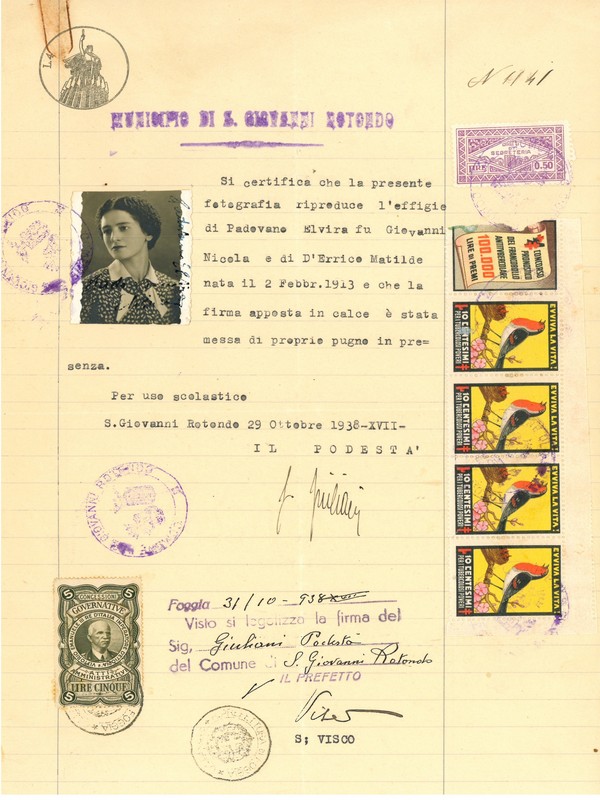 L.4
N 1141
MUNICIPIO DI S. GIOVANNI ROTONDO
SEGRETERIA
0.50
Si certifica che la presente
fotografia riproduce l'effigie
di Padovano Elvira fu Giovanni
Nicola e di D'Errico Matilde
nata il 2 Febbr.1913 e che la
firma apposta in calce è stata
messa di proprio pugno in pre-
senza.
Per uso scolastico
S.Giovanni Rotondo 29 Ottobre 1938-XVII-
IL PODESTA'
CONCORSO
PRONOSTICI
DEL FRANCOBOLLO
ANTITUBERCOLARE
100.000
LIRE DI PREMI
EVVIVA LA VITA!
10 CENTESIMI
PER I TUBERCOLOSI POVERI
EVVIVA LA VITA!
10 CENTESIMI
PER I TUBERCOLOSI POVERI
EVVIVA LA VITA!
10 CENTESIMI
PER I TUBERCOLOSI POVERI
EVVIVA LA VITA!
10 CENTESIMI
PER I TUBERCOLOSI POVERI
GIOVANNI ROTONDO
5 CONCESSIONI 5
GOVERNATIVE
ATTI
AMMINISTRATIVI
LIRE CINQUE
5 5
FOGGIA
Foggia 31/10-938 XVII
Visto si legalizza la firma del
Sig, Giuliani Podestà
del Comune di S. Giovanni Rotondo
IL PREFETTO
S; VISCO